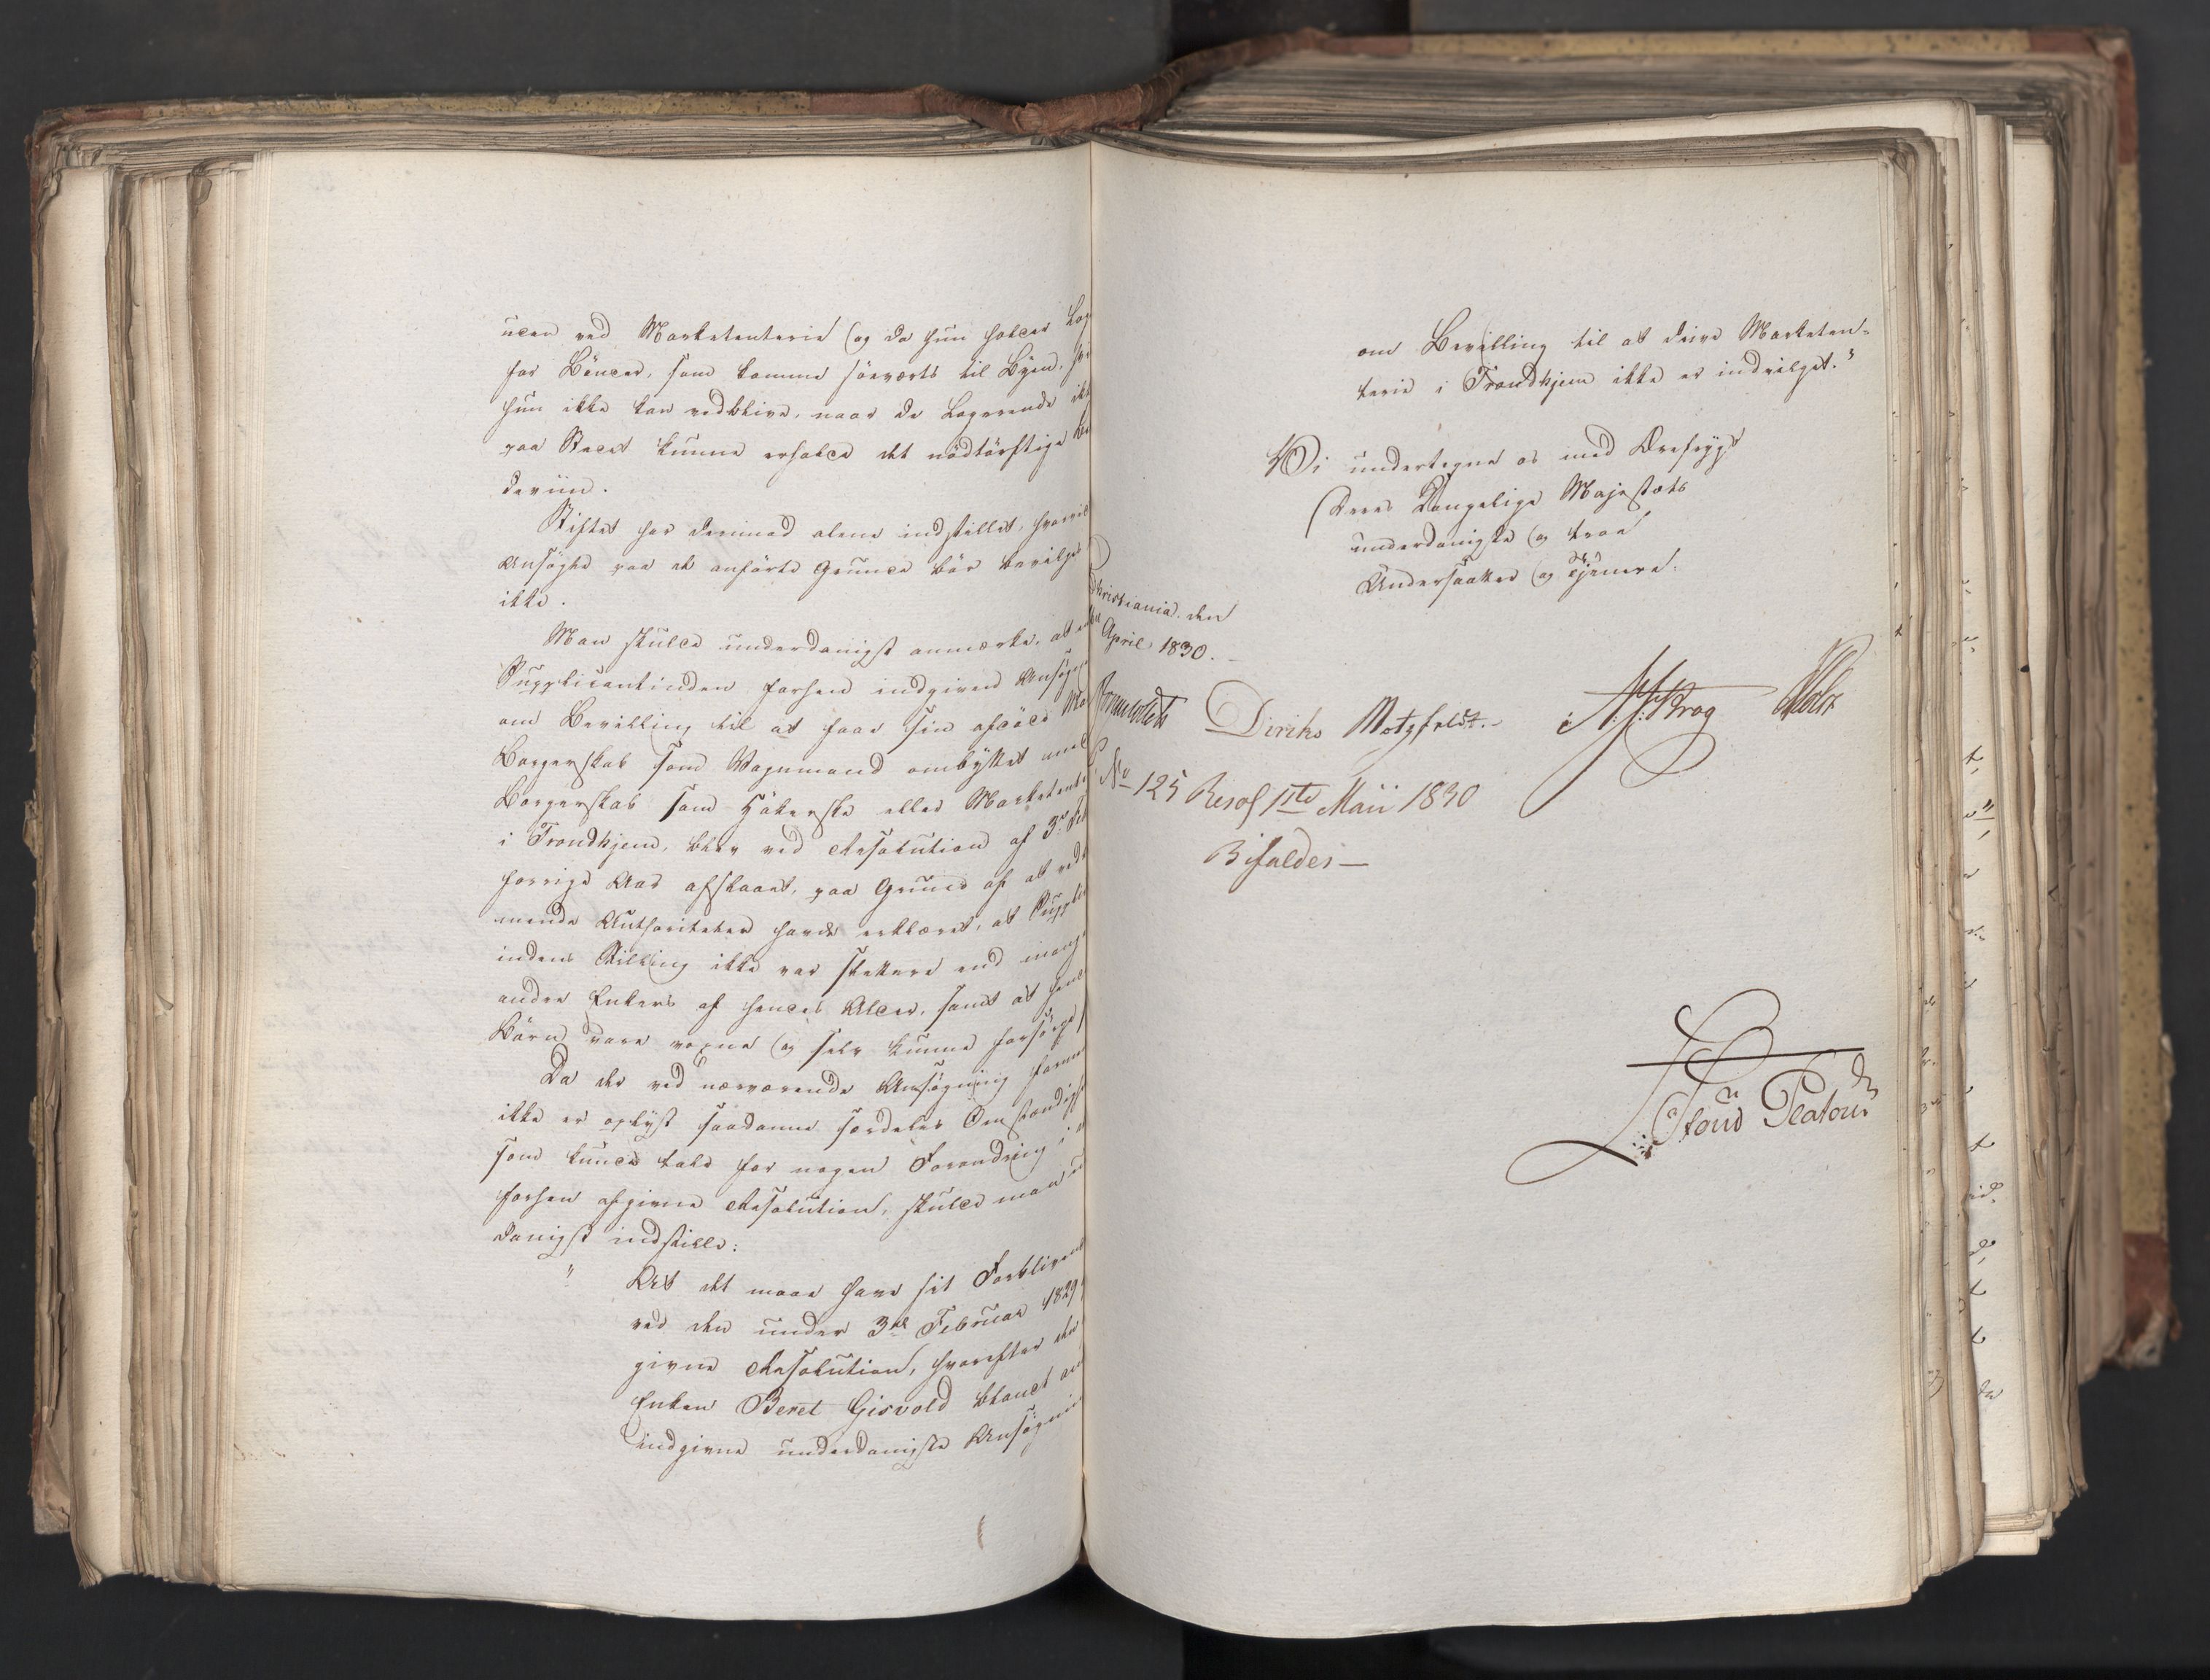 uden ved Marketenterie og da hun holder Log
for Bönder, som komme söeværts til Byen,
hun ikke kan vedblive, naar de Logerende ikke
paa Stedet kunne erholde det nödtörftige
deriim.
Stiftet har derimod alene indstillet, hvorvidt
Ansöghte paa de anförte Grunde bör bevilges
ikke.
Man skulde underdanigst anmærke, at
Supplicantinden forhen indgivne Ansög
om Bevilling til at faae sin afdöde
Borgerskab som Vognmand ombyttet med
Borgerskab som Hökerske eller Marketent
i Trondhjem, blev ved Resolution af 3die
forrige Aar afslaaet, paa Grund af at ved
mende Authoriteter havde erklæret, at Suppli
indens Stilling ikke var slettere end mang
andre Enkers af hendes Alder, samt at hend
Börn vare voxne og selv kunne forsörge
Da der ved nærværende Ansögning formee
ikke er oplyst saadanne særdeles Omstændigh
som kunde tale for nogen Forandring i
forhen afgivne Resolution, skulde man
danigst indstille:
" At det maae have sit Forblivend
ved den under 3die Februar 1829
givne Resolution, hvorefter den
Enken Beret Gisvold blandt an
indgivne underdanigste Ansögni
om Bevilling til at drive Marketen-
terie i Trondhjem ikke er indvilget."
Vi undertegne os med Ærefrygt
Deres Kongelige Majestæts
underdanigste og troe
Undersaatter og Tjenere.
Christiania den
April 1830.
Diriks Motzfeldt. Krog Holst
No 125 Resol 11te Maii 1830
Bifaldes—